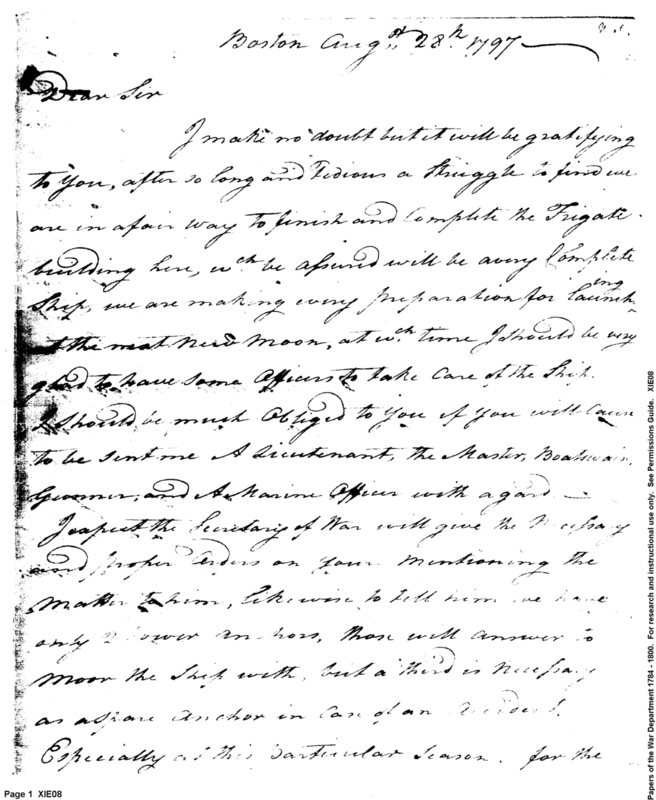 Boston Augst 28th 1797
Dear Sir
I make no doubt but it will be gratifying
to you, after so long and Tedious a Struggle to find we
are in a fair way to finish and Complete the Frigate
building here, wch be assured will be a very Complete
Ship, we are making every preparation for Launching
at the next New Moon, at wch time I should be very
glad to have some Officers to take Care of the Ship.
I should be much Obliged to you if you will Cause
to be sent me A Lieutenant, the Master, Boatswain,
Gunner, and A Marine Officer with a gard
I expect the Secretary of War will give the Necessary
and proper orders on your mentioning the
Matter to him, likewise to tell him we have
only 2 lower anchors, those will answer to
moor the Ship with, but a third is Necessary
as a spare Anchor in Case of an Accident.
Especially at this particular Season. for the
Page 1 XIE08
Papers of the War Department 1784 - 1800. For research and instructional use only. See Permissions Guide. XIE08